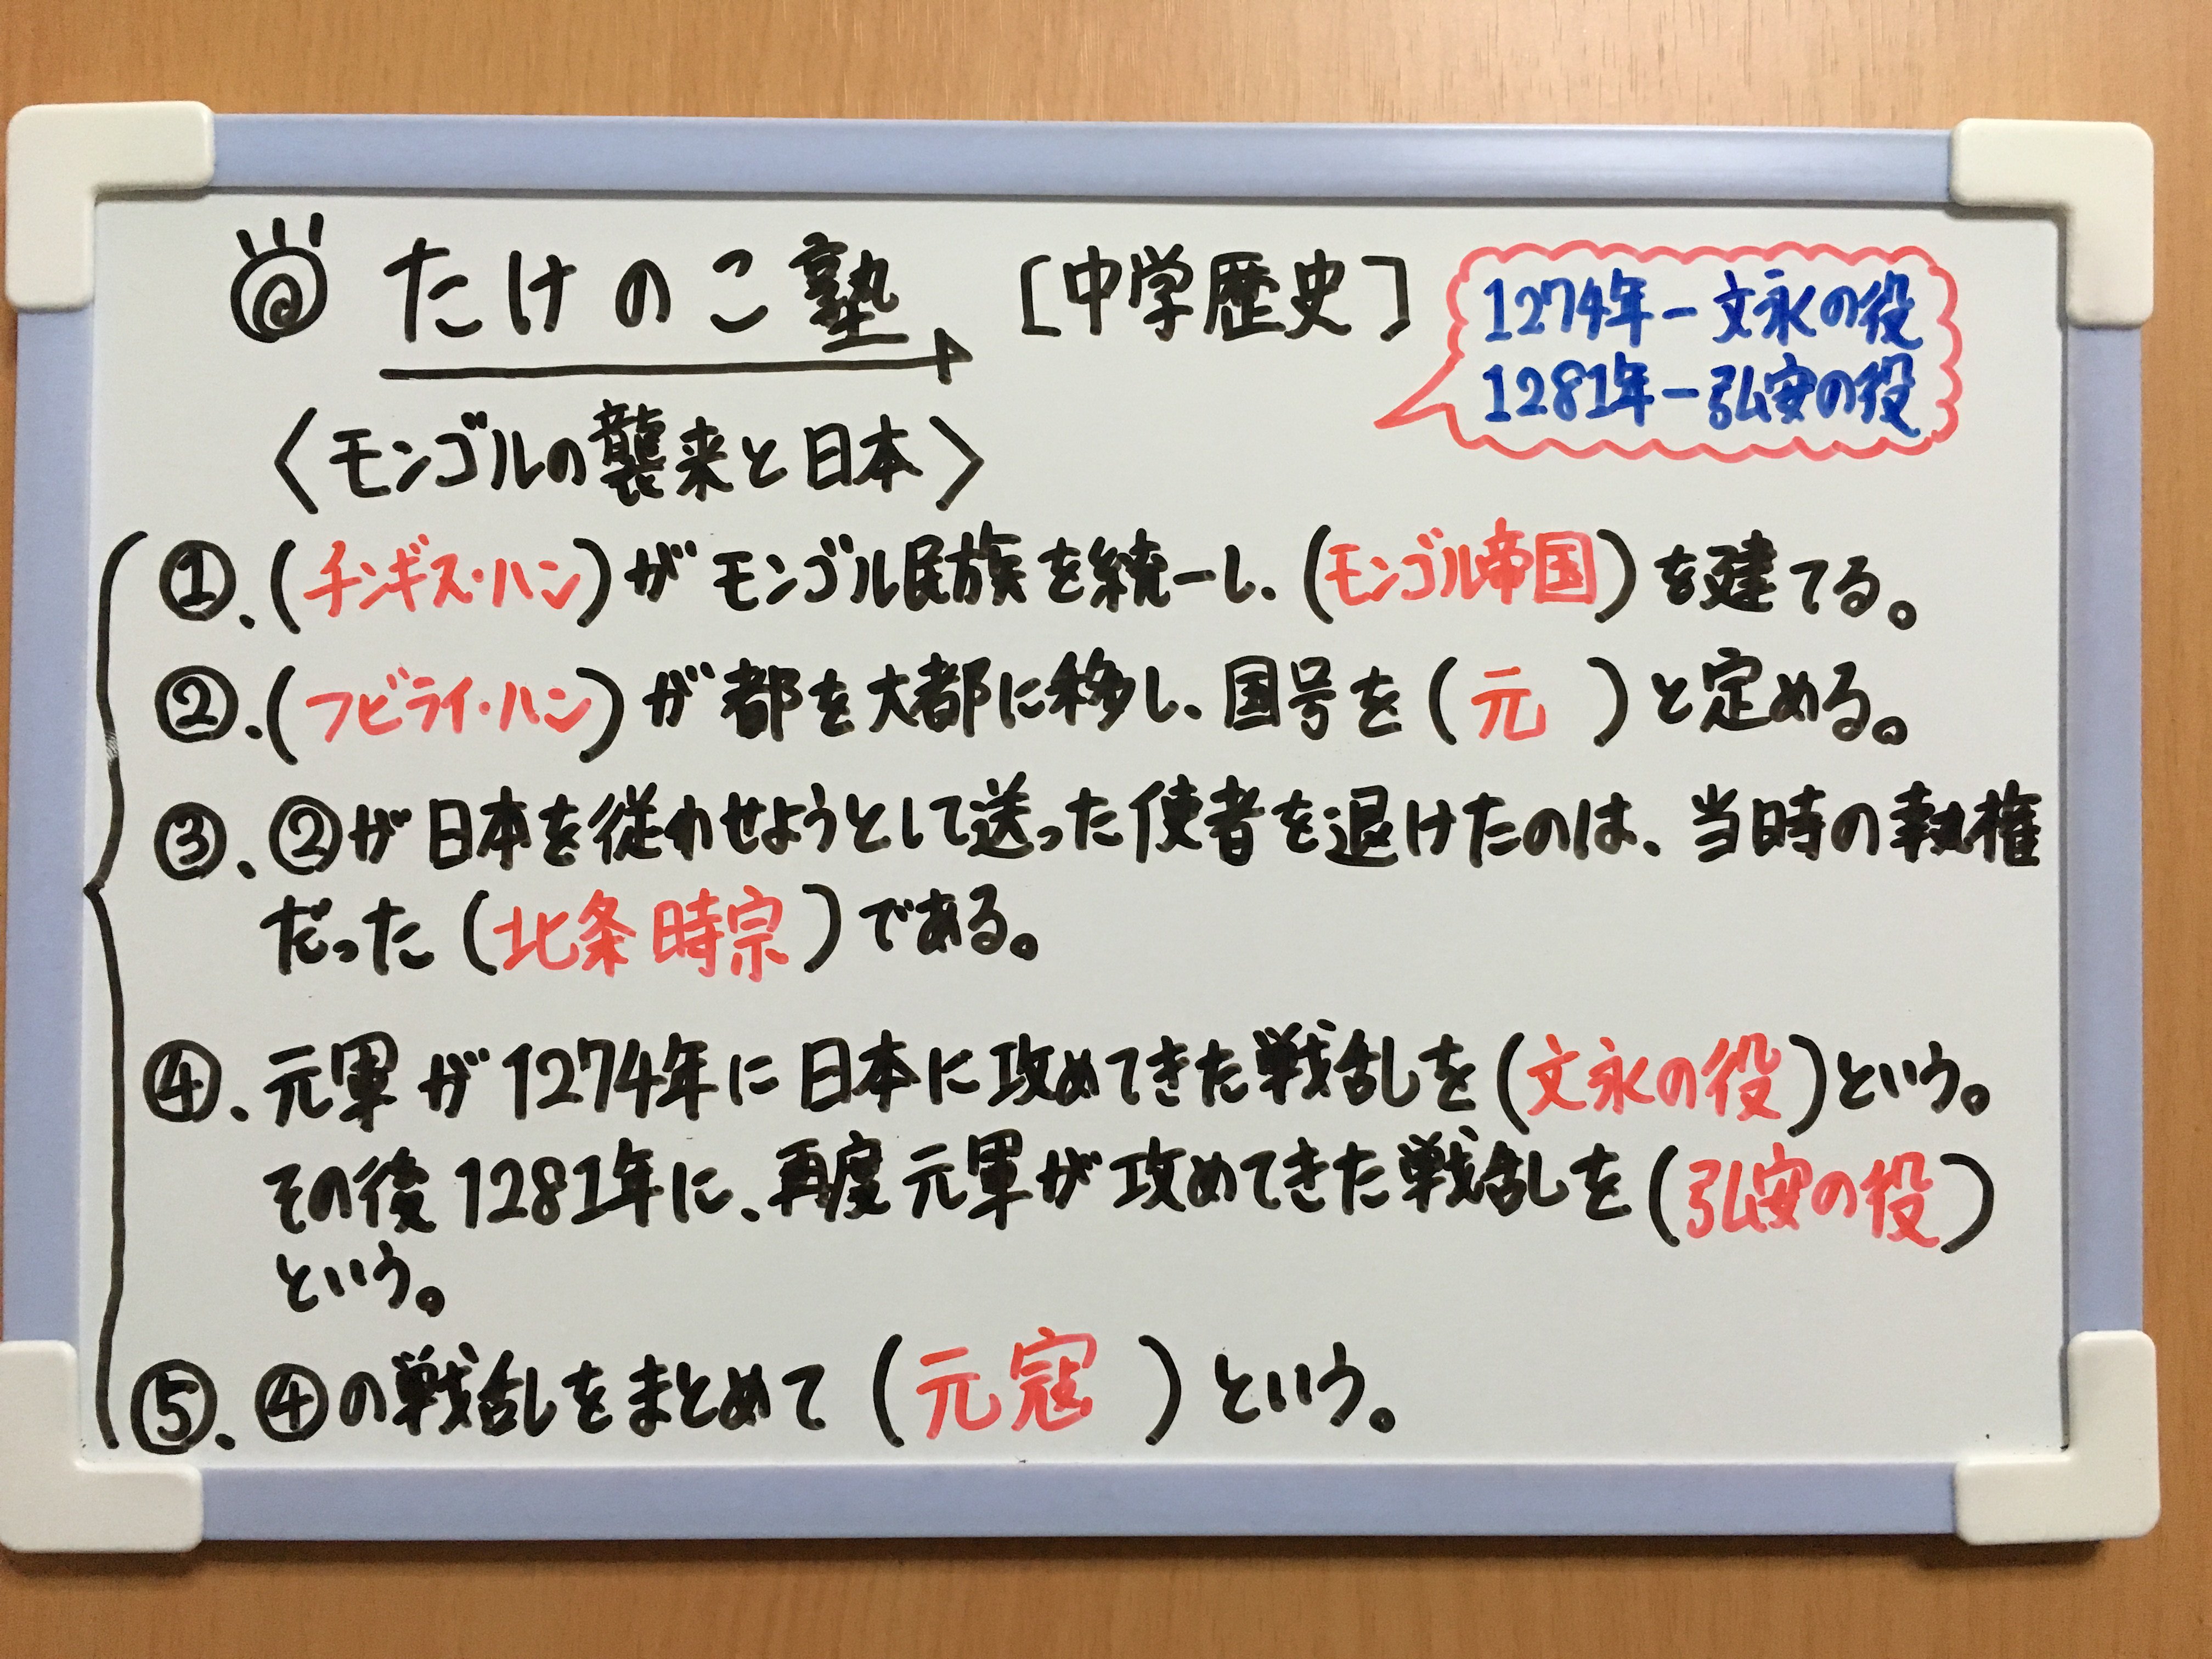 たけのこ塾 [中学歴史]
1274年ー文永の役
1281年ー弘安の役
〈モンゴルの襲来と日本〉
①.(チンギス・ハン)がモンゴル民族を統一し、(モンゴル帝国)を建てる。
②.(フビライ・ハン)が都を大都に移し、国号を(元)と定める。
③.②が日本を従わせようとして送った使者を退けたのは、当時の執権
だった(北条時宗)である。
④.元軍が1274年に日本に攻めてきた戦乱を(文永の役)という。
その後1281年に、再度元軍が攻めてきた戦乱を(弘安の役)
という。
⑤.④の戦乱をまとめて(元寇)という。